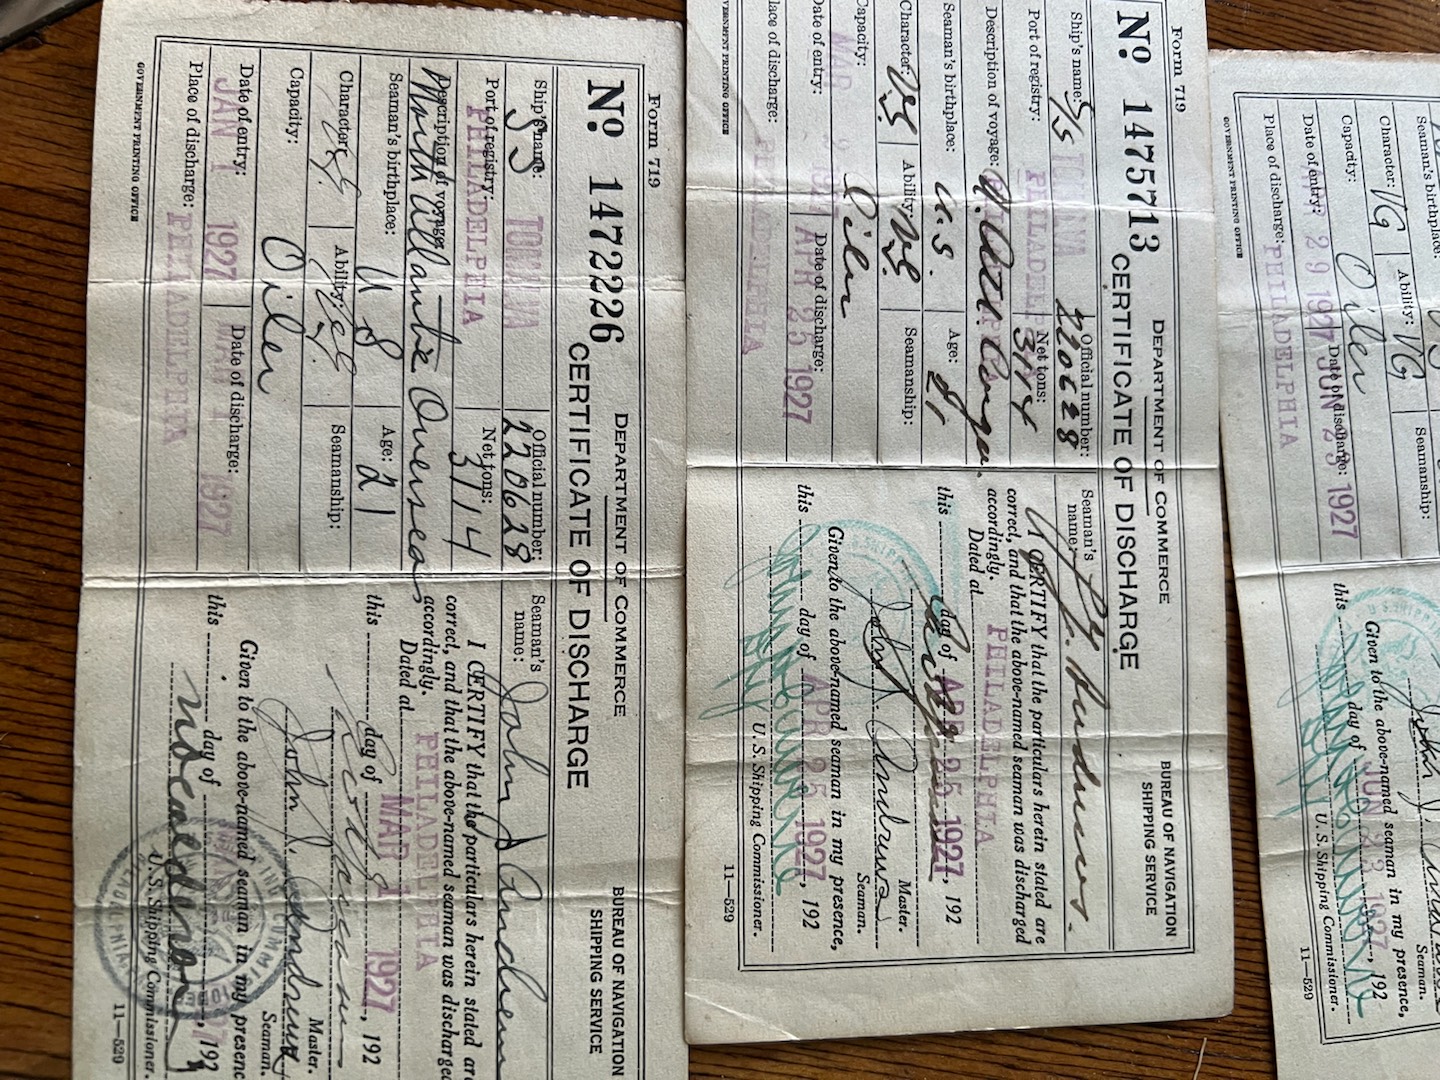 Form 719
No. 1472226
DEPARTMENT OF COMMERCE
BUREAU OF NAVIGATION
SHIPPING SERVICE
CERTIFICATE OF DISCHARGE
Ship's name: SS
Official number: 220628
Port of registry: PHILADELPHIA
Net tons: 3114
Description of voyage: North Atlantic Overseas
Seaman's birthplace: U S
Age: 21
Character: V.G.
Ability: V.G.
Seamanship:
Capacity: Oiler
Date of entry: JAN 1 1927
Date of discharge: 1927
Place of discharge: PHILADELPHIA
GOVERNMENT PRINTING OFFICE
Seaman's name: John J
I CERTIFY that the particulars herein stated are
correct, and that the above-named seaman was discharged
accordingly.
Dated at PHILADELPHIA
this day of MAR 1 1927, 192
Master.
John J. Andrews
Seaman.
Given to the above-named seaman in my presence
this day of , 192
U.S. Shipping Commissioner.
11—529
Form 719
No. 1475713
DEPARTMENT OF COMMERCE
BUREAU OF NAVIGATION
SHIPPING SERVICE
CERTIFICATE OF DISCHARGE
Ship's name: S/S
Official number: 220628
Port of registry: PHILADELPHIA
Net tons: 3114
Description of voyage:
Seaman's birthplace: U.S.
Age: 21
Character: V.G.
Ability: V.G.
Seamanship:
Capacity: Oiler
Date of entry: MAR
Date of discharge: APR 25 1927
Place of discharge: PHILADELPHIA
GOVERNMENT PRINTING OFFICE
Seaman's name:
I CERTIFY that the particulars herein stated are
correct, and that the above-named seaman was discharged
accordingly.
Dated at PHILADELPHIA
this day of APR 25 1927, 192
Master.
John J. Andrews
Seaman.
Given to the above-named seaman in my presence,
this day of APR 25 1927, 192
U. S. Shipping Commissioner.
11—529
Seaman's birthplace:
Character: VG
Ability: VG
Seamanship:
Capacity: Oiler
Date of entry: 29 1927
Date of discharge: JUN 23 1927
Place of discharge: PHILADELPHIA
GOVERNMENT PRINTING OFFICE
John J.
Seaman.
Given to the above-named seaman in my presence,
this day of JUN 23 1927, 192
U. S. Shipping Commissioner.
11—529